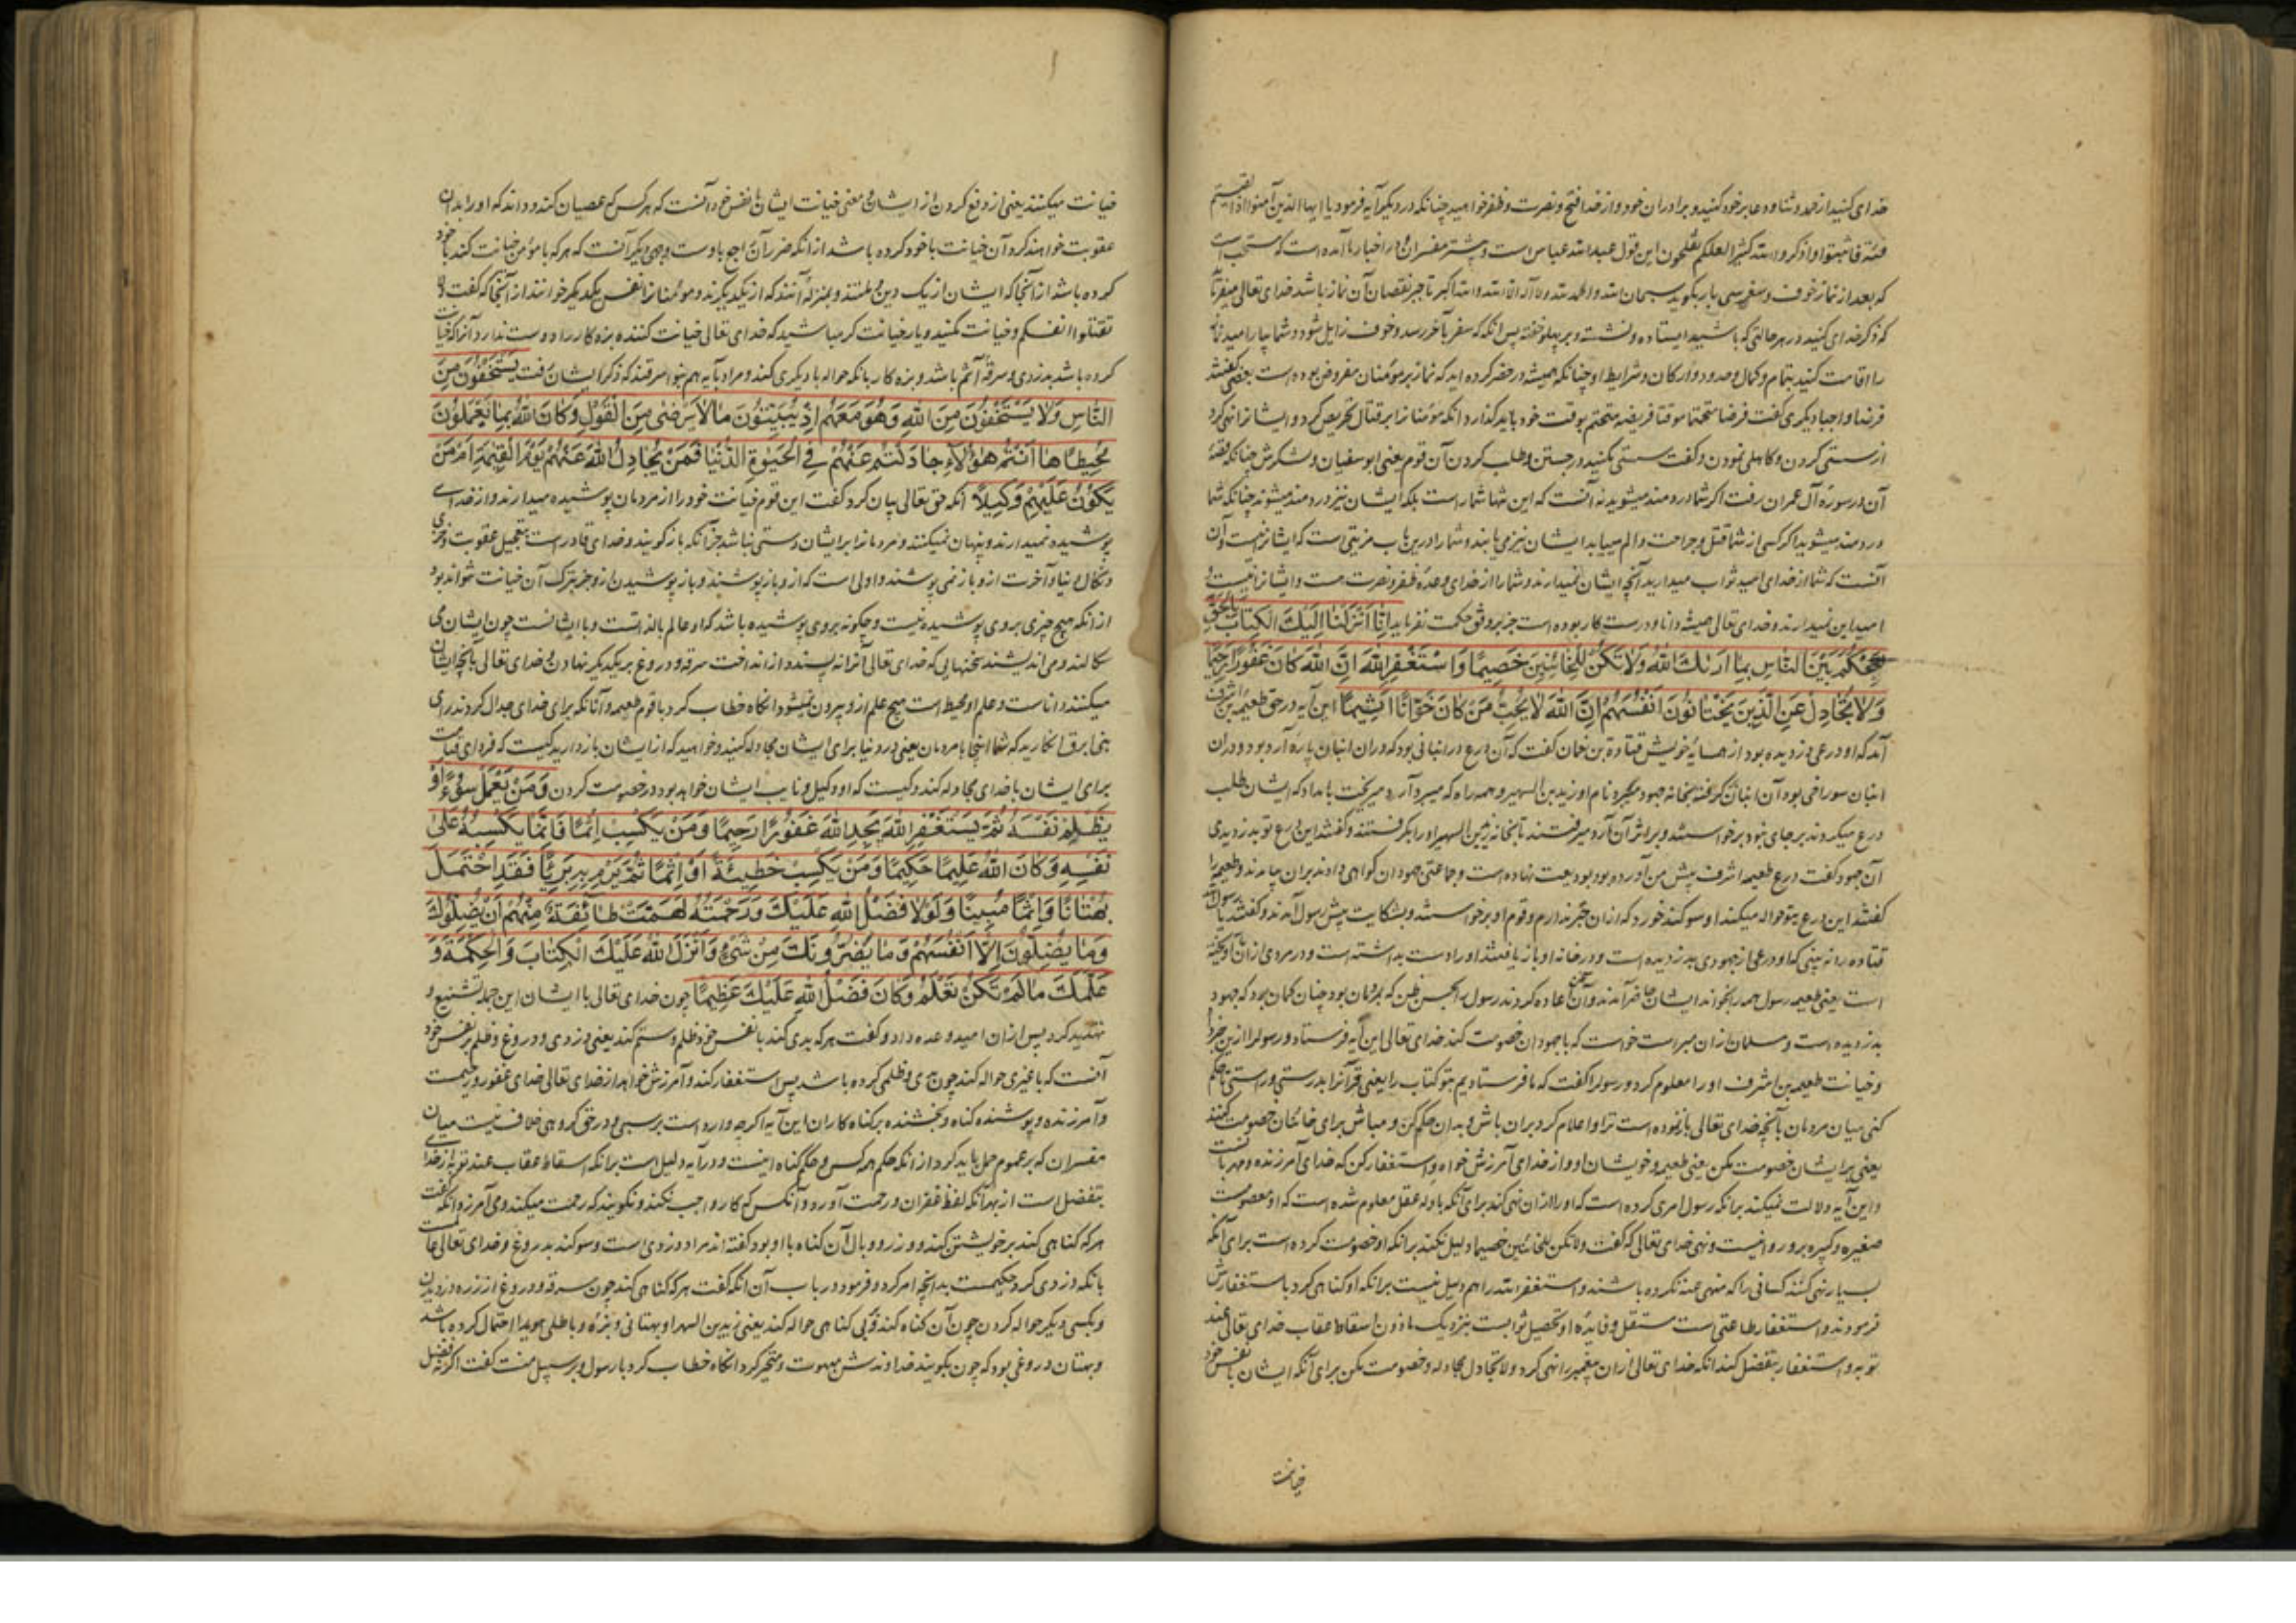 خدای کنید از حمد و ثنا و دعا بر خود کنید و برادران خود و از خدا فتح و نصرت و ظفر خواهید چنانکه در دیگر آیه فرمود یا ایها الذین آمنوا اذا لقیتم
فئة فاثبتوا و اذکروا الله کثیرا لعلکم تفلحون این قول عبدالله عباس است و بیشتر مفسران و در اخبار ما آمده است که مستحب است
که بعد از نماز خوف و سفر سی بار بگوید سبحان الله و الحمد لله و لا اله الا الله و الله اکبر تا جبر نقصان آن نماز باشد خدای تعالی میفرماید
که ذکر خدای کنید در هر حالتی که باشید ایستاده و نشسته و بر پهلو خفته پس آنکه که سفر بآخر رسد و خوف زایل شود و شما بیارامید نماز
را اقامت کنید بتمام و کمال و حدود و ارکان و شرایط او چنانکه همیشه در حضر کرده اید که نماز بر مؤمنان مفروض بوده است بعضی گفتند
فرضا واجبا دیگری گفت فرضا متحتما موقتا فریضه متحتم بوقت خود باید گذارد آنکه مؤمنانرا بر قتال تحریص کرد و ایشانرا نهی کرد
از سستی کردن و کاهلی نمودن و گفت سستی مکنید در جستن و طلب کردن آن قوم یعنی ابوسفیان و لشکرش چنانکه قصه
آن در سوره آل عمران رفت اگر شما دردمند میشوید نه آنست که این تنها شما راست بلکه ایشان نیز دردمند میشوند چنانکه شما
دردمند میشوید اگر کسی از شما قتل و جراحت و الم مییابد ایشان نیز می یابند و شما را درین باب مزیتی است که ایشانرا نیست و آن
آنست که شما از خدای امید ثواب میدارید آنچه ایشان نمیدارند و شما را از خدای وعده ظفر و نصرت هست و ایشانرا نیست و
امید این نمیدارند و خدای تعالی همیشه دانا و درست کار بوده است جز بر وفق حکمت نفرماید اِنّا اَنْزَلْنا اِلَیْكَ الْکِتابَ بِالْحَقِّ
لِتَحْکُمَ بَیْنَ النّاسِ بِما اَرٰىكَ اللهُ وَلا تَکُنْ لِلْخائِنِینَ خَصِیمًا وَاسْتَغْفِرِ اللهَ اِنَّ اللهَ کانَ غَفُورًا رَحِیمًا
وَلا تُجادِلْ عَنِ الَّذِینَ یَخْتانُونَ اَنْفُسَهُمْ اِنَّ اللهَ لا یُحِبُّ مَنْ کانَ خَوّانًا اَثِیمًا این آیه در حق طعیمه بن اشرف
آمد که او درعی دزدیده بود از همسایه خویش قتادة بن نعمان گفت که آن درع در انبانی بود که در آن انبان پاره آرد بود و در آن
انبان سوراخی بود آن انبان گرفته بخانه جهود میگیره نام او زید بن السهیر و همه راه که میبرد آرد میریخت بامداد که ایشان طلب
درع میکردند بر جای نبود برخواستند و بر اثر آن آرد میرفتند تا بخانه زید بن السهیر او را بگرفتند و گفتند این درع تو بدزدیدی
آن جهود گفت درع طعیمه اشرف پیش من آورده بود بودیعت نهاده است و جماعتی جهودان گواهی دادند بران بیامدند و طعیمه را
گفتند این درع بتو حواله میکند او سوگند خورد که از ان خبر ندارم و قوم او برخواستند و بشکایت پیش رسول آمدند و گفتند یا رسول الله
قتاده را نه بینی که او درعی از جهودی بدزدیده است و در خانه او باز یافتند او را دست بداشته است و در مردمی از ما آویخته
است یعنی طعیمه رسول همه را بخواند ایشان حاضر آمدند و آن سخن اعاده کردند رسول را بحسن ظن که بر ایشان بود چنان گمان برد که جهود
بدزدیده است و مسلمان از ان مبراست خواست که با جهودان خصومت کند خدای تعالی این آیه فرستاد و رسول را ازین خبر داد
و خیانت طعیمه بن اشرف او را معلوم کرد و رسول را گفت که ما فرستادیم بتو کتاب را یعنی قرآنرا بدرستی و راستی تا حکم
کنی میان مردمان بآنچه خدای تعالی باز نموده است ترا و اعلام کرد بران باش و بدان حکم کن و مباش برای خائنان خصومت کننده
یعنی برای ایشان خصومت مکن یعنی طعیمه و خویشان او و از خدای آمرزش خواه و استغفار کن که خدای آمرزنده و مهربانست
و این آیه دلالت نمیکند بر آنکه رسول امری کرده است که او را از ان نهی کند برای آنکه بادله عقل معلوم شده است که او معصومست
صغیره و کبیره برو روا نیست و نهی خدای تعالی که گفت ولا تکن للخائنین خصیما دلیل نکند بر آنکه او خصومت کرده است برای آنکه
بسیار نهی کنند کسانی را که منهی عنه نکرده باشند و استغفر الله را هم دلیل نیست بر آنکه او گناهی کرد باستغفارش
فرمودند و استغفار طاعتی است مستقل و فایده او تحصیل ثوابست بنزدیک ما و نه اسقاط عقاب خدای تعالی عند
توبه و استغفار بتفضل کند آنکه خدای تعالی از ان پیغمبر را نهی کرد ولا تجادل مجادله و خصومت مکن برای آنکه ایشان با نفس خود
خیانت
خیانت میکنند یعنی از دفع کردن از ایشان و معنی خیانت ایشان با نفس خود آنست که هر کس که عصیان کند و داند که او را بدان
عقوبت خواهند کرد آن خیانت با خود کرده باشد از آنکه ضرر آن راجع با اوست و وجهی دیگر آنست که هر که با مؤمن خیانت کند با خود
کرده باشد از آنجا که ایشان از یک دین و ملتند و بمنزله آنند که از یکدیگرند و مؤمنانرا نفس یکدیگر خوانند از آنجا که گفت و لا
تقتلوا انفسکم و خیانت مکنید و یار خیانت گر مباشید که خدای تعالی خیانت کننده بزه کار را دوست ندارد آنرا که خیانت
کرده باشد بدزدی و سرقه آثم باشد و بزه کار بانکه حواله با دیگری کند و مراد بآیه هم بنو ابیرقند که ذکر ایشان رفت یَسْتَخْفُونَ مِنَ
النّاسِ وَلا یَسْتَخْفُونَ مِنَ اللهِ وَهُوَ مَعَهُمْ اِذْ یُبَیِّتُونَ ما لا یَرْضٰى مِنَ الْقَوْلِ وَکانَ اللهُ بِما یَعْمَلُونَ
مُحِیطًا ها اَنْتُمْ هٰؤُلاءِ جادَلْتُمْ عَنْهُمْ فِی الْحَیٰوةِ الدُّنْیا فَمَنْ یُجادِلُ اللهَ عَنْهُمْ یَوْمَ الْقِیٰمَةِ اَمْ مَنْ
یَکُونُ عَلَیْهِمْ وَکِیلًا آنکه حق تعالی بیان کرد گفت این قوم خیانت خود را از مردمان پوشیده میدارند و از خدای
پوشیده نمیدارند و پنهان نمیکنند و مردمانرا بر ایشان دستی نباشد جز آنکه باز گویند و خدای قادر است بتعجیل عقوبت و خزی
و نکال دنیا و آخرت ازو باز نمی پوشند و اولی است که ازو باز پوشند و باز پوشیدن ازو جز بترک آن خیانت نتواند بود
از آنکه هیچ چیزی بر وی پوشیده نیست و چگونه بر وی پوشیده باشد که او عالم بالذاتست و با ایشانست چون ایشان می
سکالند و می اندیشند سخنهایی که خدای تعالی آنرا نه پسندد از انداخت سرقه و دروغ بر یکدیگر نهادن و خدای تعالی بآنچه ایشان
میکنند داناست و علم او محیط است هیچ علم ازو بیرون نمیشود آنکاه خطاب کرد با قوم طعیمه و آنانکه برای خدای جدال کردند برای
بنی ابیرق انکارید که شما اینجا با مردمان یعنی در دنیا برای ایشان مجادله کنید و خواهید که از ایشان باز دارید کیست که فردای قیامت
برای ایشان با خدای مجادله کند و کیست که او وکیل و نایب ایشان خواهد بود در خصومت کردن وَمَنْ یَعْمَلْ سُوءًا اَوْ
یَظْلِمْ نَفْسَهُ ثُمَّ یَسْتَغْفِرِ اللهَ یَجِدِ اللهَ غَفُورًا رَحِیمًا وَمَنْ یَکْسِبْ اِثْمًا فَاِنَّما یَکْسِبُهُ عَلٰى
نَفْسِهِ وَکانَ اللهُ عَلِیمًا حَکِیمًا وَمَنْ یَکْسِبْ خَطِیئَةً اَوْ اِثْمًا ثُمَّ یَرْمِ بِهِ بَرِیئًا فَقَدِ احْتَمَلَ
بُهْتانًا وَاِثْمًا مُبِینًا وَلَوْلا فَضْلُ اللهِ عَلَیْكَ وَرَحْمَتُهُ لَهَمَّتْ طائِفَةٌ مِنْهُمْ اَنْ یُضِلُّوكَ
وَما یُضِلُّونَ اِلّا اَنْفُسَهُمْ وَما یَضُرُّونَكَ مِنْ شَیْءٍ وَاَنْزَلَ اللهُ عَلَیْكَ الْکِتابَ وَالْحِکْمَةَ وَ
عَلَّمَكَ ما لَمْ تَکُنْ تَعْلَمُ وَکانَ فَضْلُ اللهِ عَلَیْكَ عَظِیمًا چون خدای تعالی با ایشان این جمله تشنیع و
تهدید کرد پس از ان امید و وعده داد و گفت هر که بدی کند با نفس خود و ظلم و ستم کند یعنی دزدی و دروغ و ظلم بر نفس خود
آنست که با غیری حواله کند چون بدی و ظلمی کرده باشد پس استغفار کند و آمرزش خواهد از خدای تعالی خدای غفور و رحیمست
و آمرزنده و پوشنده گناه و بخشنده بر گناه کاران این آیه اگرچه وارد است بر سببی و در حق گروهی خلاف نیست میان
مفسران که بر عموم حمل باید کرد از آنکه حکم همه کس و حکم گناه اینست و در آیه دلیل است بر آنکه اسقاط عقاب عند توبه از خدای
بتفضل است از بهر آنکه لفظ غفران و رحمت آورد و آنکس که کار واجب کند نگویند که رحمت میکند و می آمرزد آنکه گفت
هر که گناهی کند بر خویشتن کند و وزر و وبال آن گناه با او بود گفته اند مراد دزدی است و سوگند بدروغ و خدای تعالی عالمست
بانکه دزدی کرد حکیمست بدانچه امر کرد و فرمود در باب آن آنکه گفت هر که گناهی کند چون سرقه و دروغ از زره دزدیدن
و بکسی دیگر حواله کردن چون آن گناه کند و بی گناهی حواله کند یعنی زید بن السهیر او بهتانی و بزه و باطلی هویدا احتمال کرده باشد
و بهتان دروغی بود که چون بگویند خداوندش مبهوت و متحیر گردد آنکاه خطاب کرد با رسول بر سبیل منت گفت اگر نه فضل